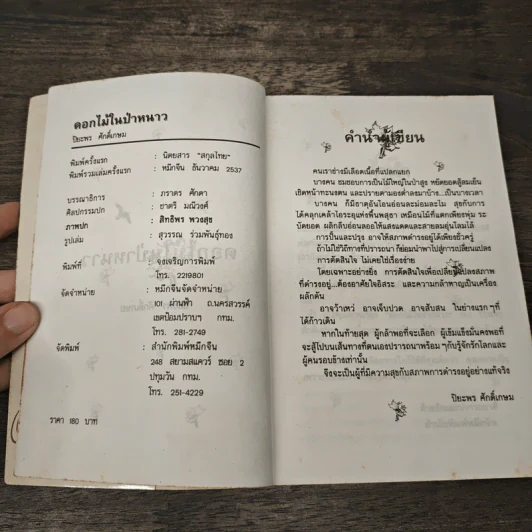 ดอกไม้ในป่าหนาว
ปิยะพร ศักดิ์เกษม
พิมพ์ครั้งแรก : นิตยสาร "สกุลไทย"
พิมพ์รวมเล่มครั้งแรก : หมึกจีน ธันวาคม 2537
บรรณาธิการ : ภราดร ศักดา
ศิลปกรรมปก : ชาตรี มณีวงศ์
ภาพปก : สิทธิพร พวงสุข
รูปเล่ม : สุวรรณ ร่วมพันธุ์ทอง
พิมพ์ที่ : จงเจริญการพิมพ์
โทร. 2219801
จัดจำหน่าย : หมึกจีนจัดจำหน่าย
101 ผ่านฟ้า ถ.นครสวรรค์
เขตป้อมปราบฯ กทม.
โทร. 281-2749
จัดพิมพ์ : สำนักพิมพ์หมึกจีน
248 สยามสแควร์ ซอย 2
ปทุมวัน กทม.
โทร. 251-4229
ราคา 180 บาท
คำนำผู้เขียน
คนเราต่างมีเลือดเนื้อที่แปลกแยก
บางคน ชมชอบการเป็นไม้ใหญ่ในป่าสูง หยัดยอดสู้ลมเย็น
เชิดหน้าทะนงตน และปรายตามองต่ำลงมาบ้าง...เป็นบางเวลา
บางคน ก็มีธาตุอันโอนอ่อนละม่อมละไม สุขกับการ
ได้คลุกเคล้าไอระอุแห่งพื้นพสุธา เหมือนไม้ที่แตกเพียงพุ่ม ระ
บัดยอด ผลิกลีบอ่อนลออให้แสงแดดและสายลมอุ่นโลมไล้
การปีนและปรุง อาจให้สภาพดำรงอยู่ได้เพียงชั่วครู่
ถ้าไม่ใช่วิถีทางที่ปรารถนา ก็ย่อมนำพาไปสู่การเปลี่ยนแปลง
การตัดสินใจ ไม่เคยใช่เรื่องง่าย
โดยเฉพาะอย่างยิ่ง การตัดสินใจเพื่อเปลี่ยนแปลงสภาพ
ที่ดำรงอยู่...ต้องอาศัยใจอิสระ และความกล้าหาญเป็นเครื่อง
ผลักดัน
อาจว้าเหว่ อาจเจ็บปวด อาจสับสน ในย่างแรกๆ ที่
ได้ก้าวเดิน
หากในท้ายสุด ผู้กล้าพอที่จะเลือก ผู้เข้มแข็งมั่นคงพอที่
จะสู้ไปบนเส้นทางที่ตนเองปรารถนาพร้อมๆ กับรู้จักรักโลกและ
ผู้คนรอบข้างเท่านั้น
จึงจะเป็นผู้ที่มีความสุขกับสภาพการดำรงอยู่อย่างแท้จริง
ปิยะพร ศักดิ์เกษม